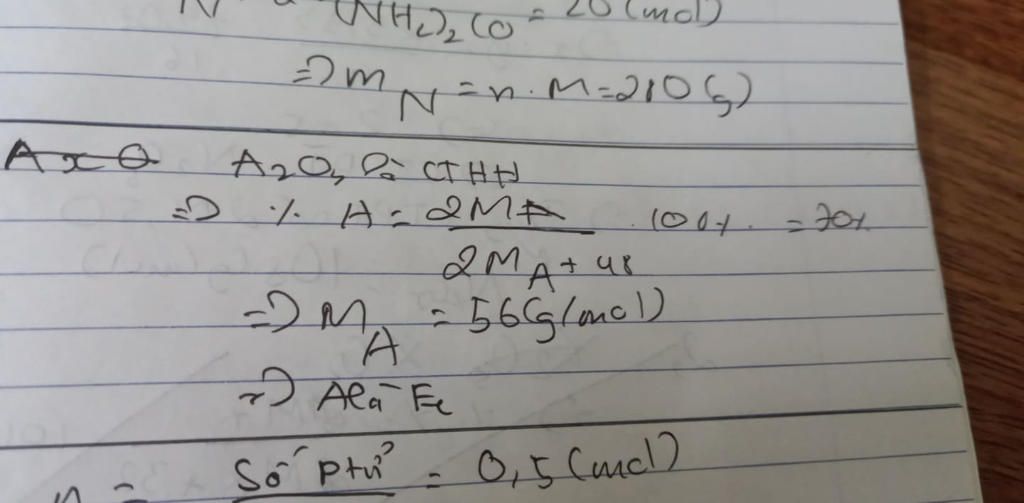 (NH2)2CO = 20 (mol)
=> mN = n . M = 210 (g)
A2O3 là CTHH
=> % A = 2MA / 2MA + 48 . 100% = 70%
=> MA = 56 (g/mol)
=> A là Fe
n = Số ptử = 0,5 (mol)